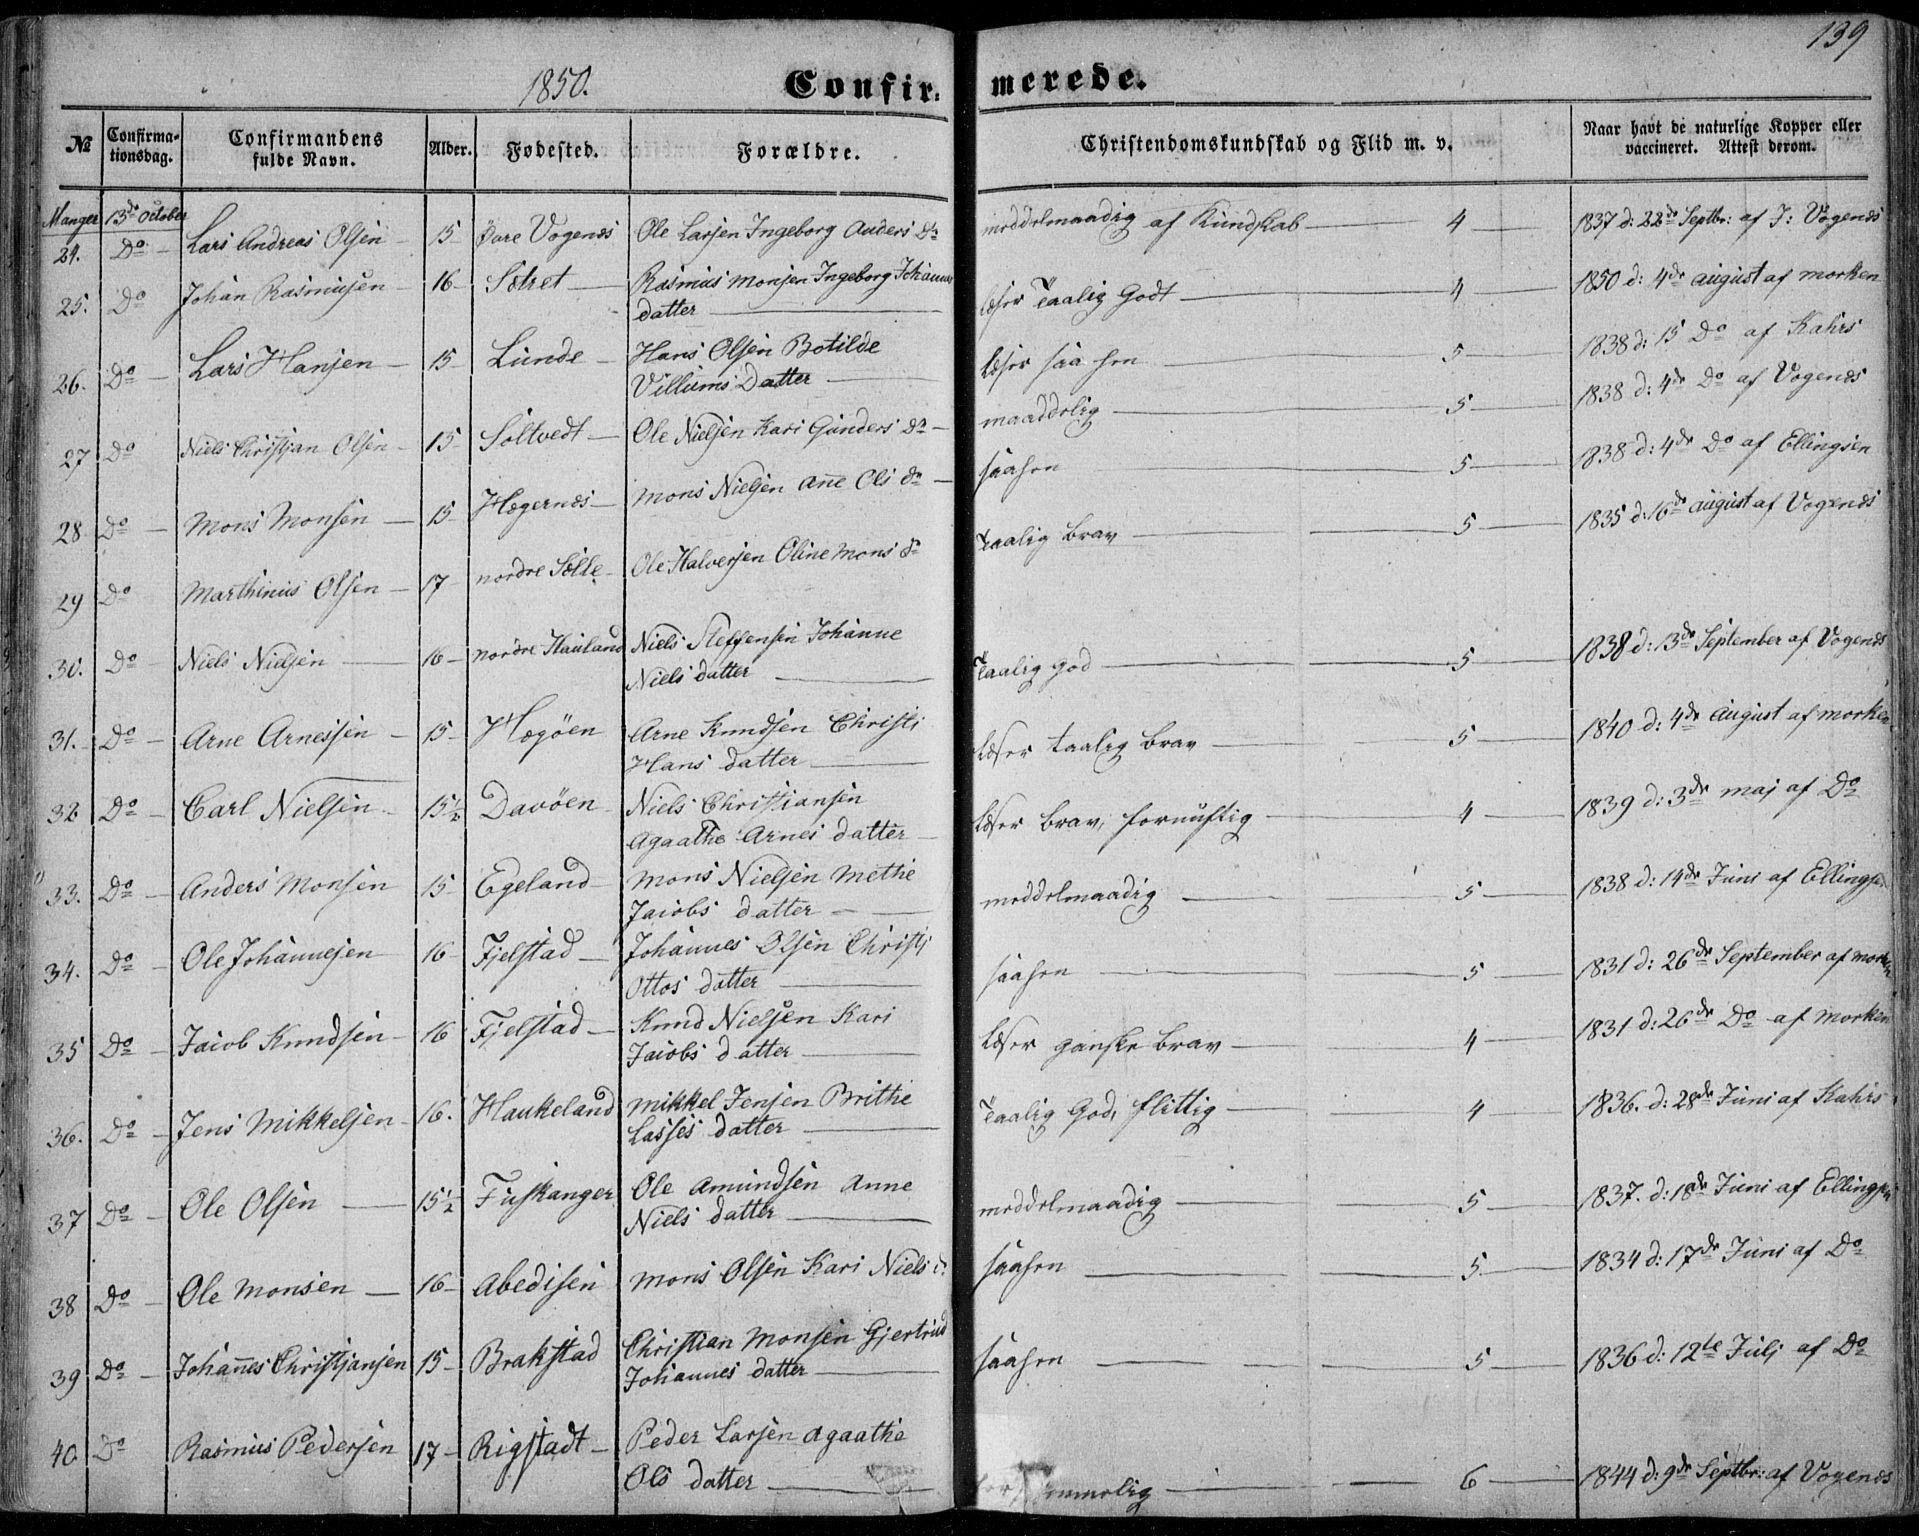 139
1850. Confirmerede.
№ | Confirmationsdag. | Confirmandens fulde Navn. | Alder. | Fodested. | Forældre. | Christendomskundskab og Flid m. v. | Naar havt de naturlige Kopper eller vaccineret. Attest derom.
Manger 13de October
24. Do Lars Andreas Olsen 15 Øvre Vogenes Ole Larsen Ingeborg Anders Dr middelmaadig af Kundskab 4 1837 d: 22de Septbr: af J: Vogenæs
25. Do Johan Rasmusen 16 Sætret Rasmus Monsen Ingeborg Johannes datter læser Taalig Godt 4 1850 d: 4de august af morken
26. Do Lars Hansen 15 Lunde Hans Olsen Botilde Villums Datter læser saa hen 5 1838 d: 15 Do af Kahrs
27 Do Niels Christian Olsen 15 Soltvedt Ole Nielsen Kari Gunders Dr maaddelig 5 1838 d: 4de Do af Vogenæs
28 Do Mons Monsen 15 Hægernæs Mons Nielsen Anne Ols dr saahen 5 1838 d: 4de Do af Ellingsen
29 Do Marthinus Olsen 17 nordre Sælle Ole Halversen Oline Mons dr Taalig brav 5 1835 d: 16de august af Vogenæs
30. Do Niels Nielsen 16 nordre Hauland Niels Steffensen Johanne Niels datter Taalig god 5 1838 d: 13de September af Vogenæs
31. Do Arne Arnessen 15 Hægöen Arne Knudsen Christi Hans datter læser taalig brav 5 1840 d: 4de august af morken
32 Do Carl Nielsen 15½ Davöen Niels Christiansen Agaathe Arnes datter læser brav, fornuftig 4 1839 d: 3de maj af Do
33. Do Anders Monsen 15 Egeland Mons Nielsen Methe Jacobs datter middelmaadig 5 1838 d: 14de Juni af Ellingsen
34. Do Ole Johannesen 16 Fjelstad Johannes Olsen Christi Ottos datter saahen 5 1831 d: 26de September af morken
35 Do Jacob Knudsen 16 Fjelstad Knud Nielsen Kari Jacobs datter læser ganske brav 4 1831 d: 26de Do af morken
36. Do Jens Mikkelsen 16. Haukeland Mikkel Jensen Brithe Lasses datter Taalig God, flittig 4 1836. d: 28de Juni af Kahrs
37 Do Ole Olsen 15½ Fuskanger Ole Amundsen Anne Niels datter middelmaadig 5 1837. d: 18de Juni af Ellingsen
38 Do Ole Monsen 16 Abedisen Mons Olsen Kari Niels d. saahen 5 1834 d: 17de Juni af Do
39 Do Johannes Christiansen 15 Brakstad Christian Monsen Gjertrud Johannes datter saahen 5 1836 d: 12te Juli af Do
40 Do Rasmus Pedersen 17 Rigstadt Peder Larsen Agaathe Ols datter 6 1844 d: 9de Septbr: af Vogenæs